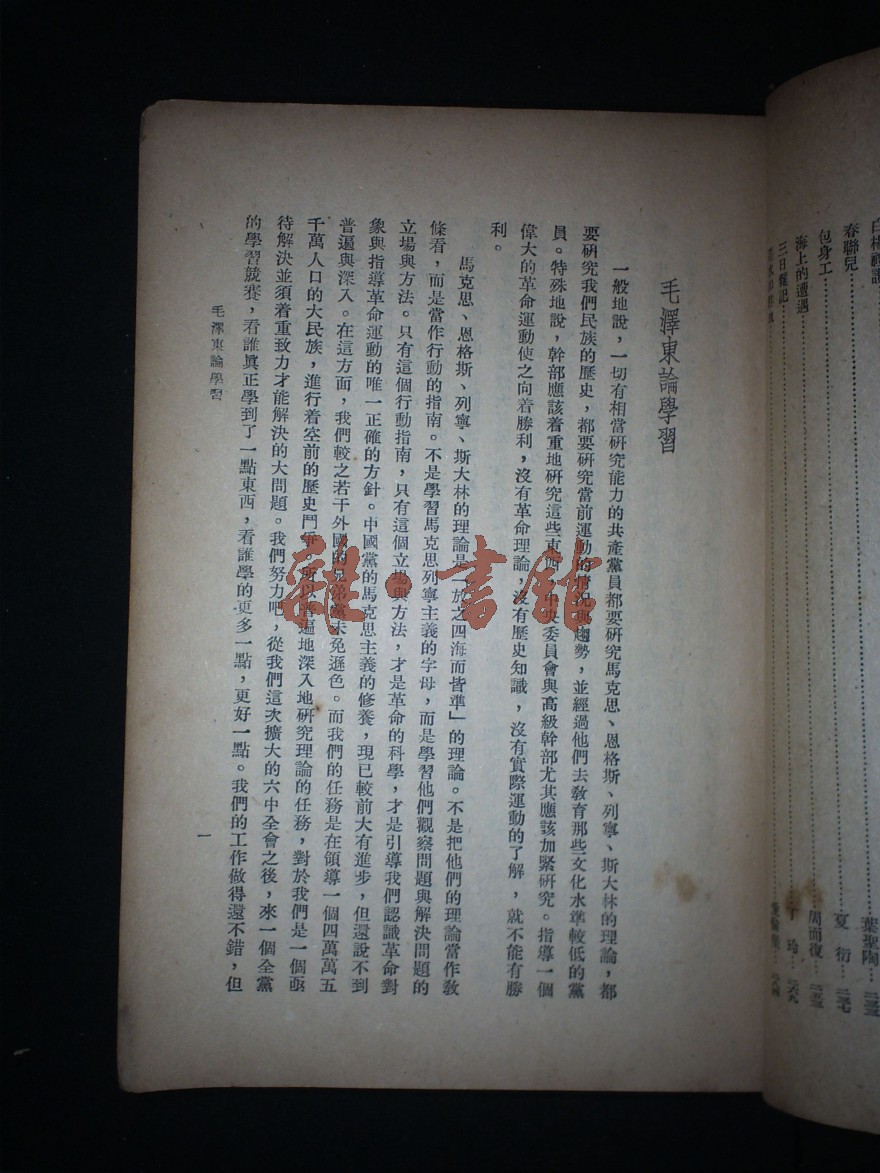 春聯兒……葉聖陶…
包身工……夏 衍…
海上的遭遇……周而復…
三日雜記……丁 玲…
毛澤東論學習
一般地說，一切有相當研究能力的共產黨員都要研究馬克思、恩格斯、列寧、斯大林的理論，都
要研究我們民族的歷史，都要研究當前運動的情況與趨勢，並經過他們去敎育那些文化水準較低的黨
員。特殊地說，幹部應該着重地研究這些東西，中央委員會與高級幹部尤其應該加緊研究。指導一個
偉大的革命運動使之向着勝利，沒有革命理論，沒有歷史知識，沒有實際運動的了解，就不能有勝
利。
馬克思、恩格斯、列寧、斯大林的理論是「放之四海而皆準」的理論。不是把他們的理論當作敎
條看，而是當作行動的指南。不是學習馬克思列寧主義的字母，而是學習他們觀察問題與解決問題的
立場與方法。只有這個行動指南，只有這個立場與方法，才是革命的科學，才是引導我們認識革命對
象與指導革命運動的唯一正確的方針。中國黨的馬克思主義的修養，現已較前大有進步，但還說不到
普遍與深入。在這方面，我們較之若干外國的兄弟黨未免遜色。而我們的任務是在領導一個四萬萬五
千萬人口的大民族，進行着空前的歷史鬥爭，所以普遍地深入地研究理論的任務，對於我們是一個亟
待解決並須着重致力才能解決的大問題。我們努力吧，從我們這次擴大的六中全會之後，來一個全黨
的學習競賽，看誰眞正學到了一點東西，看誰學的更多一點，更好一點。我們的工作做得還不錯，但
毛澤東論學習
一
雜·書館